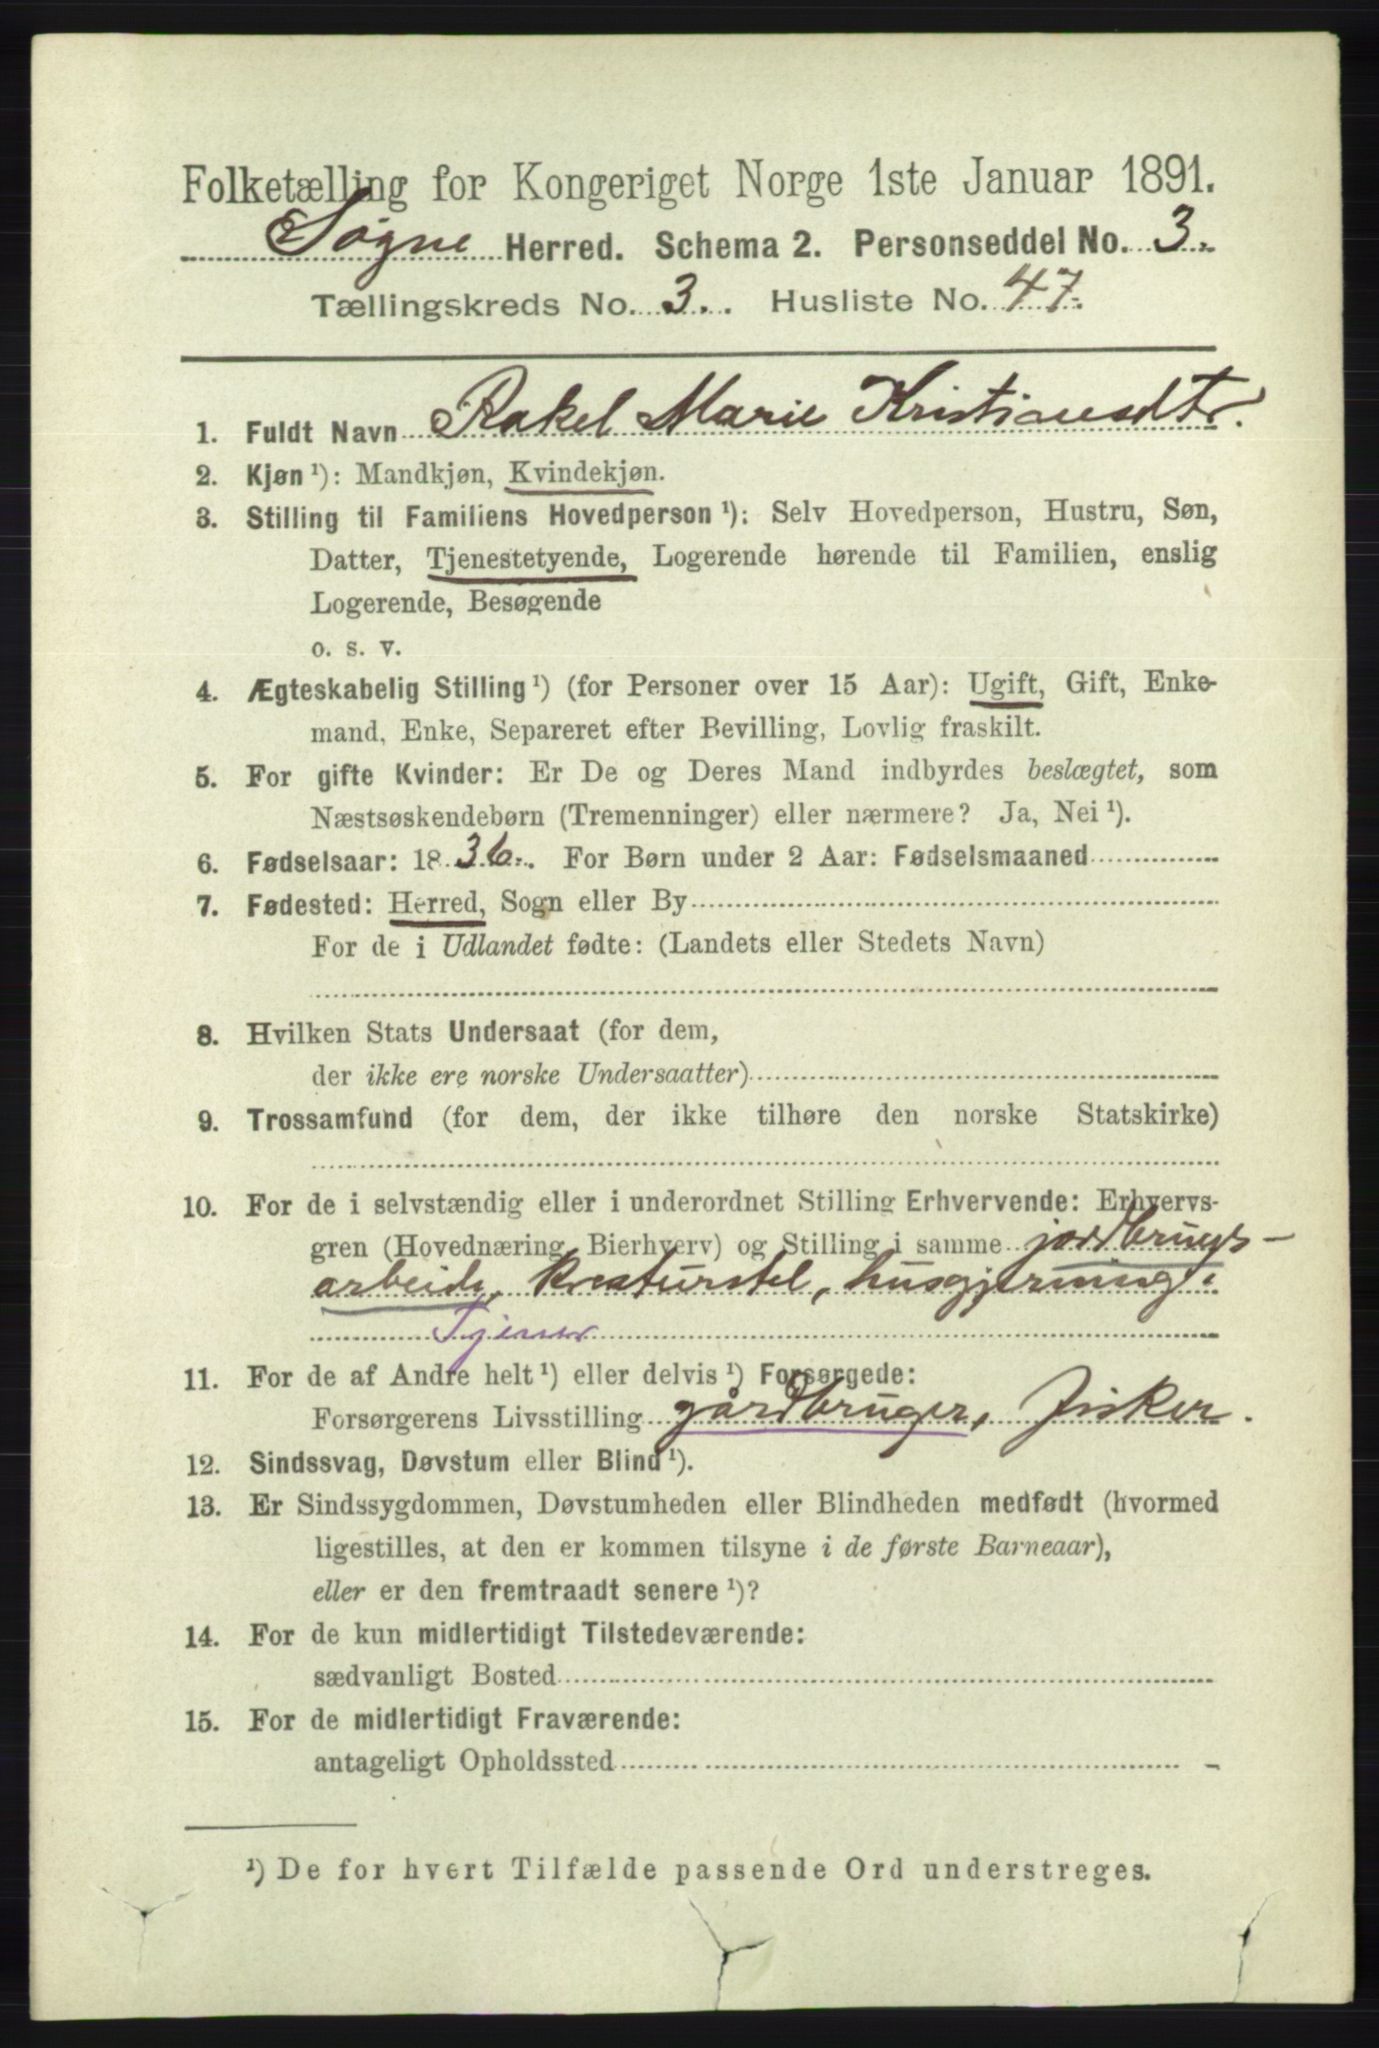 Folketælling for Kongeriget Norge 1ste Januar 1891.
Søgne Herred. Schema 2. Personseddel No. 3.
Tællingskreds No. 3. Husliste No. 47.
1. Fuldt Navn Rakel Marie Kristiansdtr.
2. Kjøn ¹): Mandkjøn, Kvindekjøn.
3. Stilling til Familiens Hovedperson ¹): Selv Hovedperson, Hustru, Søn,
Datter, Tjenestetyende, Logerende hørende til Familien, enslig
Logerende, Besøgende
o. s. v.
4. Ægteskabelig Stilling ¹) (for Personer over 15 Aar): Ugift, Gift, Enke-
mand, Enke, Separeret efter Bevilling, Lovlig fraskilt.
5. For gifte Kvinder: Er De og Deres Mand indbyrdes beslægtet, som
Næstsøskendebørn (Tremenninger) eller nærmere? Ja, Nei ¹).
6. Fødselsaar: 1836. For Børn under 2 Aar: Fødselsmaaned
7. Fødested: Herred, Sogn eller By
For de i Udlandet fødte: (Landets eller Stedets Navn)
8. Hvilken Stats Undersaat (for dem,
der ikke ere norske Undersaatter)
9. Trossamfund (for dem, der ikke tilhøre den norske Statskirke)
10. For de i selvstændig eller i underordnet Stilling Erhvervende: Erhvervs-
gren (Hovednæring, Bierhverv) og Stilling i samme jordbrugs-
arbeide, kreaturstel, husgjerning.
Tjener
11. For de af Andre helt ¹) eller delvis ¹) Forsørgede:
Forsørgerens Livsstilling gårdbruger, Fisker.
12. Sindssvag, Døvstum eller Blind ¹).
13. Er Sindssygdommen, Døvstumheden eller Blindheden medfødt (hvormed
ligestilles, at den er kommen tilsyne i de første Barneaar),
eller er den fremtraadt senere ¹)?
14. For de kun midlertidigt Tilstedeværende:
sædvanligt Bosted
15. For de midlertidigt Fraværende:
antageligt Opholdssted
¹) De for hvert Tilfælde passende Ord understreges.